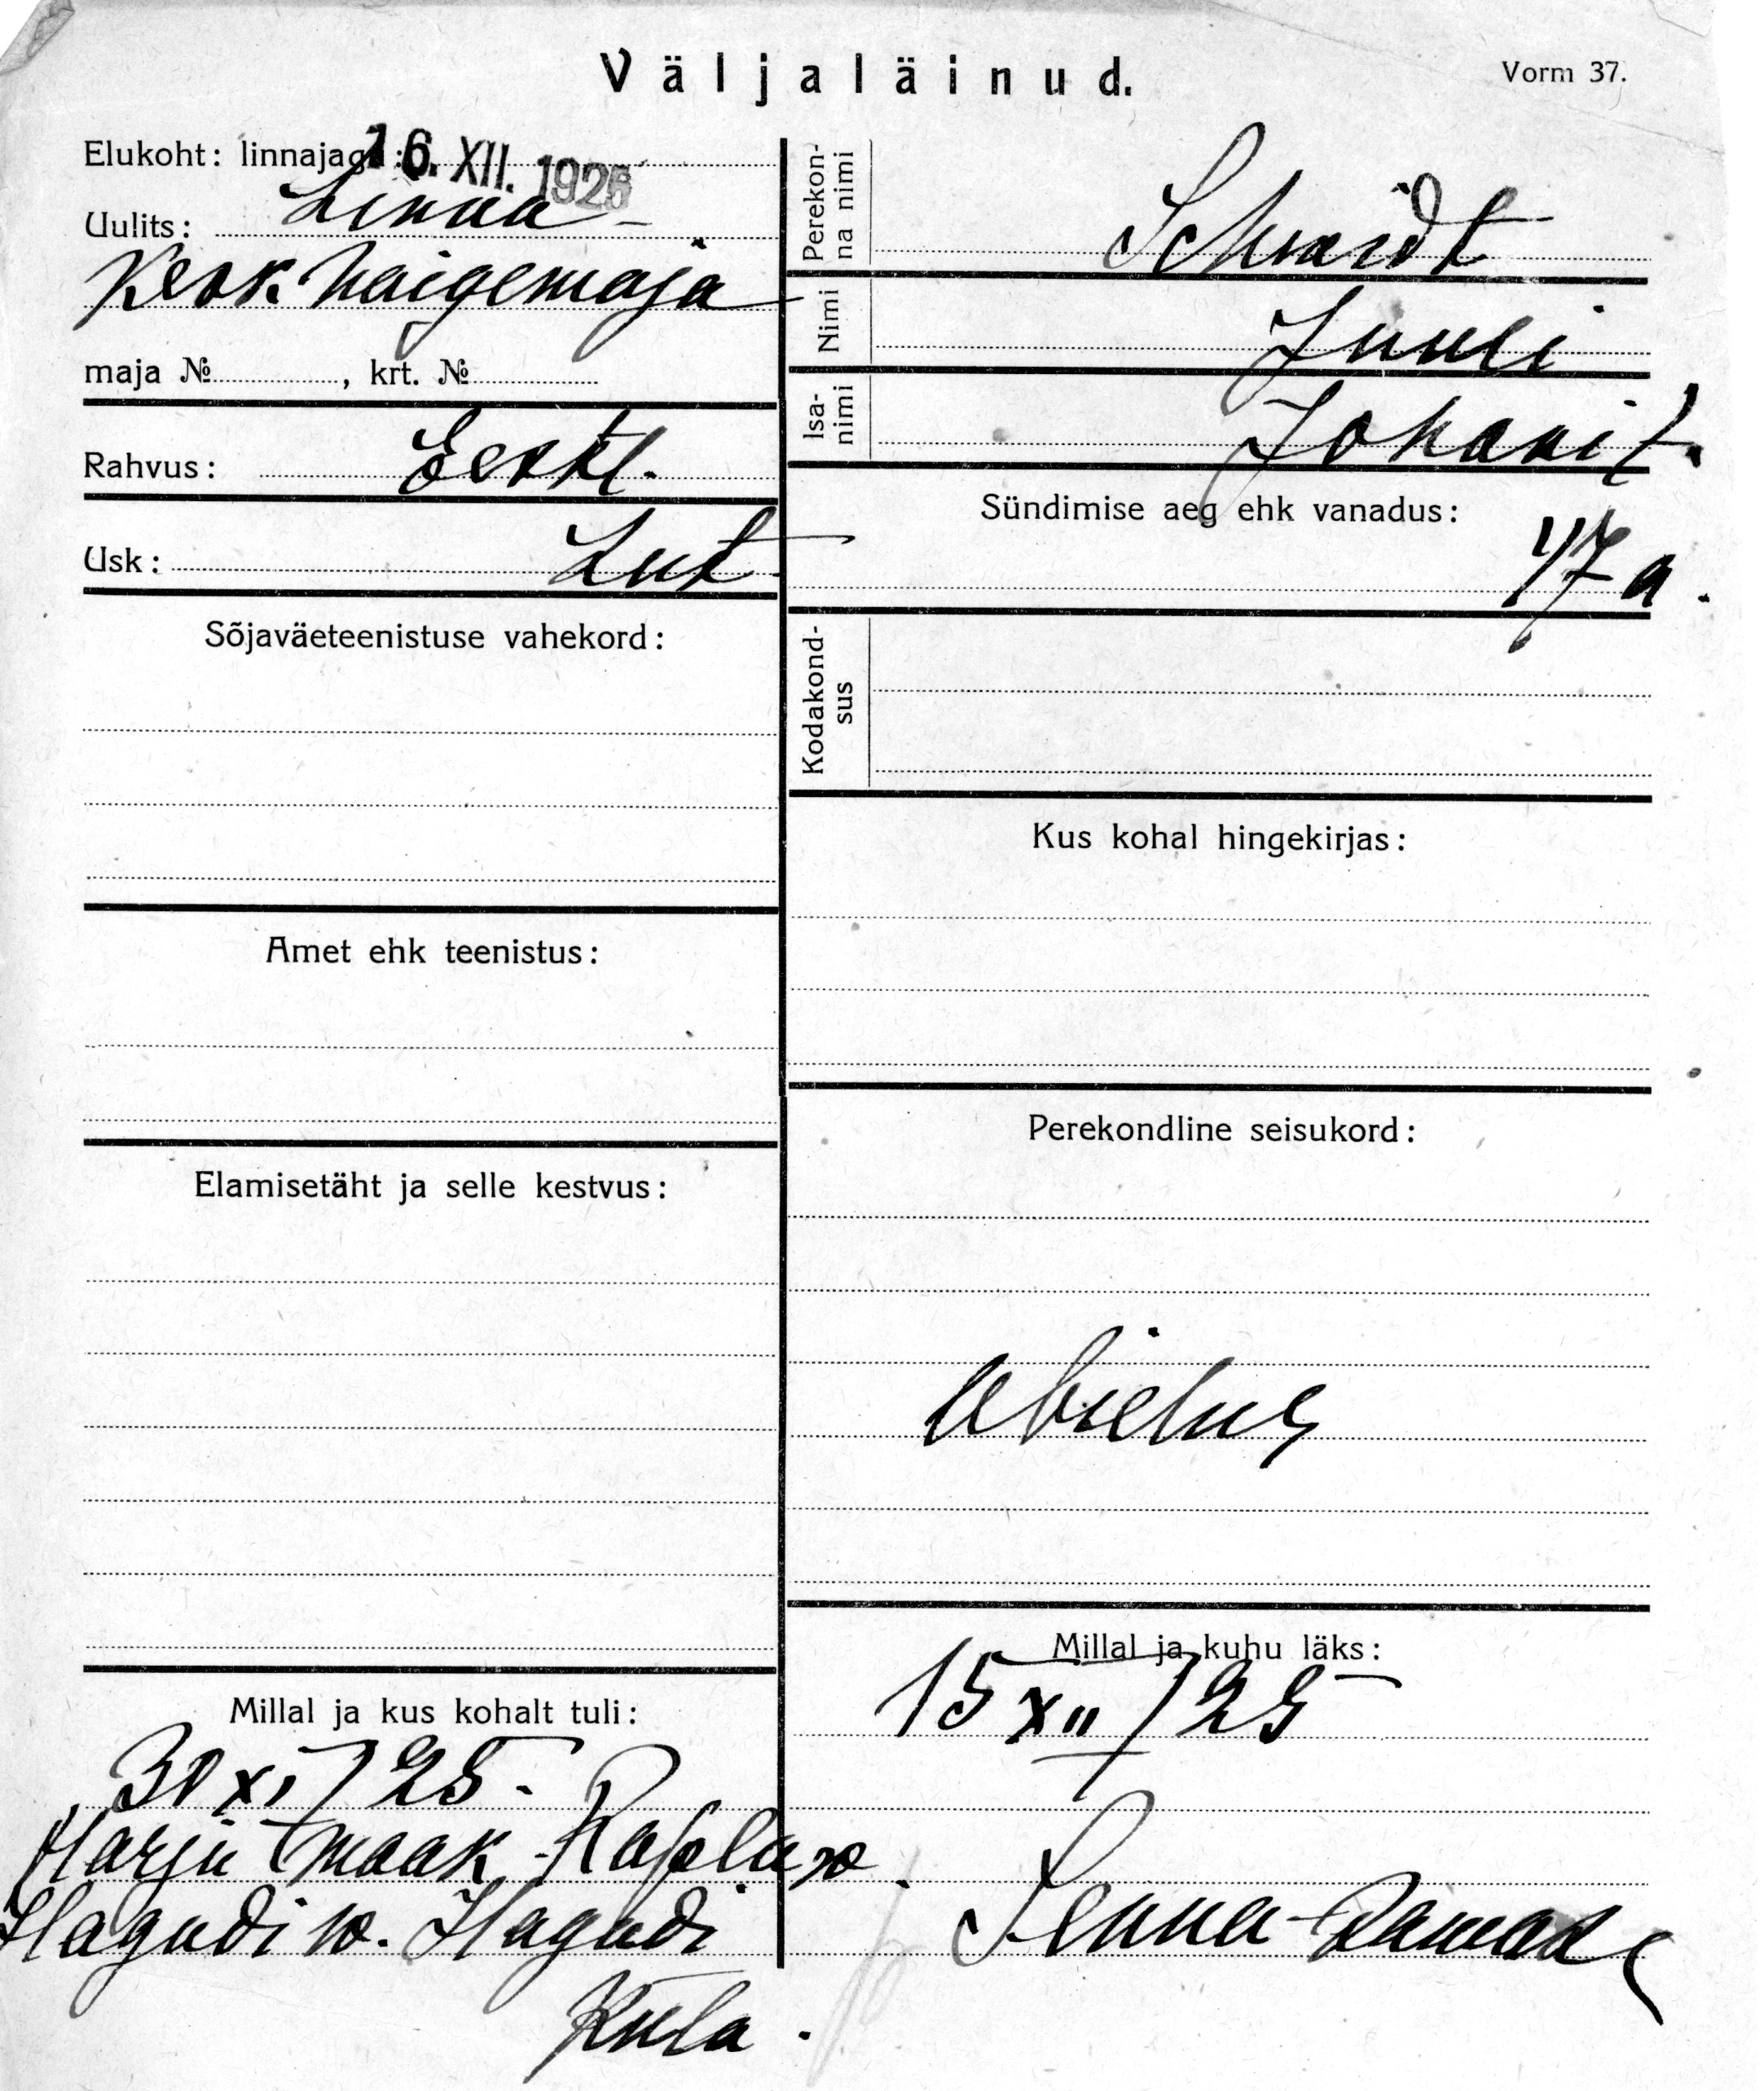 Väljaläinud.
Vorm 37.
Elukoht: linnajagu:
16. XII. 1925
Uulits: Linna
Keskhaigemaja
maja №, krt. №
Rahvus: Eestl.
Usk: Lut
Sõjaväeteenistuse vahekord:
Amet ehk teenistus:
Elamisetäht ja selle kestvus:
Millal ja kus kohalt tuli:
30 XI / 25.
Harju maak Rapla
Hagudi w. Hagudi
Küla.
Perekonna nimi Schmidt
Nimi Juuli
Isanimi
Sündimise aeg ehk vanadus:
47 a.
Kodakondsus
Kus kohal hingekirjas:
Perekondline seisukord:
abielus
Millal ja kuhu läks:
15 XII / 25